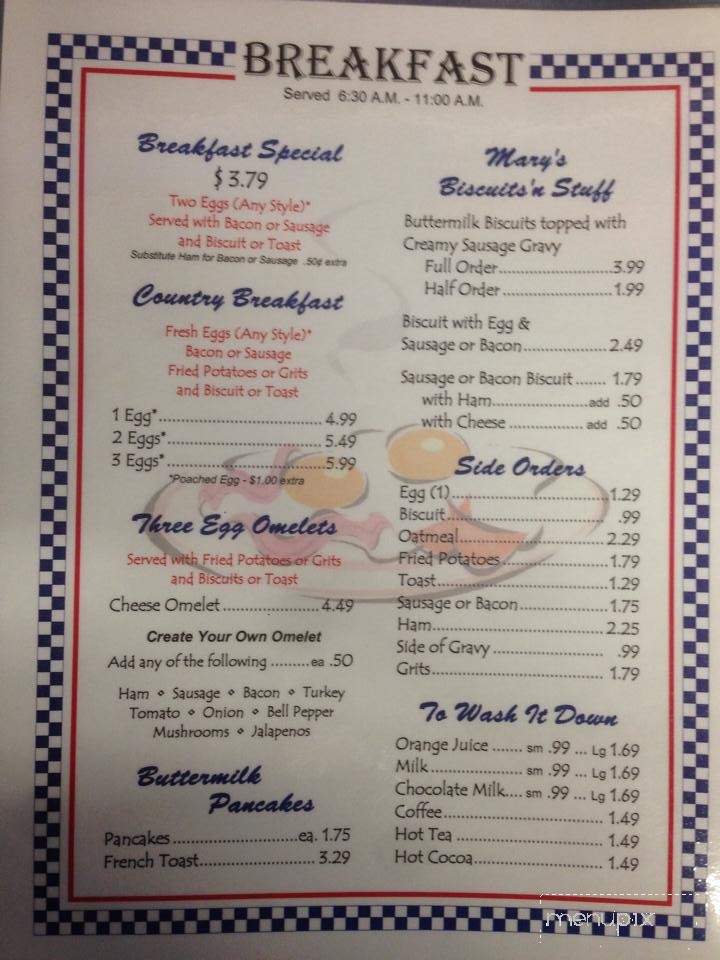 BREAKFAST
Served 6:30 A.M. - 11:00 A.M.
Breakfast Special
$3.79
Two Eggs (Any Style)*
Served with Bacon or Sausage
and Biscuit or Toast
Substitute Ham for Bacon or Sausage .50¢ extra
Country Breakfast
Fresh Eggs (Any Style)*
Bacon or Sausage
Fried Potatoes or Grits
and Biscuit or Toast
1 Egg*.......................................4.99
2 Eggs*.....................................5.49
3 Eggs*.....................................5.99
*Poached Egg - $1.00 extra
Three Egg Omelets
Served with Fried Potatoes or Grits
and Biscuits or Toast
Cheese Omelet.......................4.49
Create Your Own Omelet
Add any of the following .........ea .50
Ham ⋄ Sausage ⋄ Bacon ⋄ Turkey
Tomato ⋄ Onion ⋄ Bell Pepper
Mushrooms ⋄ Jalapenos
Buttermilk
Pancakes
Pancakes.............................ea. 1.75
French Toast........................... 3.29
Mary's
Biscuits'n Stuff
Buttermilk Biscuits topped with
Creamy Sausage Gravy
Full Order..........................3.99
Half Order.........................1.99
Biscuit with Egg &
Sausage or Bacon.....................2.49
Sausage or Bacon Biscuit....... 1.79
with Ham.......................add .50
with Cheese ...................add .50
Side Orders
Egg (1).....................................1.29
Biscuit..................................... .99
Oatmeal...................................2.29
Fried Potatoes..........................1.79
Toast........................................1.29
Sausage or Bacon.....................1.75
Ham.........................................2.25
Side of Gravy........................... .99
Grits......................................... 1.79
To Wash It Down
Orange Juice ....... sm .99 ... Lg 1.69
Milk....................... sm .99 ... Lg 1.69
Chocolate Milk.... sm .99 ... Lg 1.69
Coffee...................................... 1.49
Hot Tea .................................... 1.49
Hot Cocoa................................ 1.49
menupix